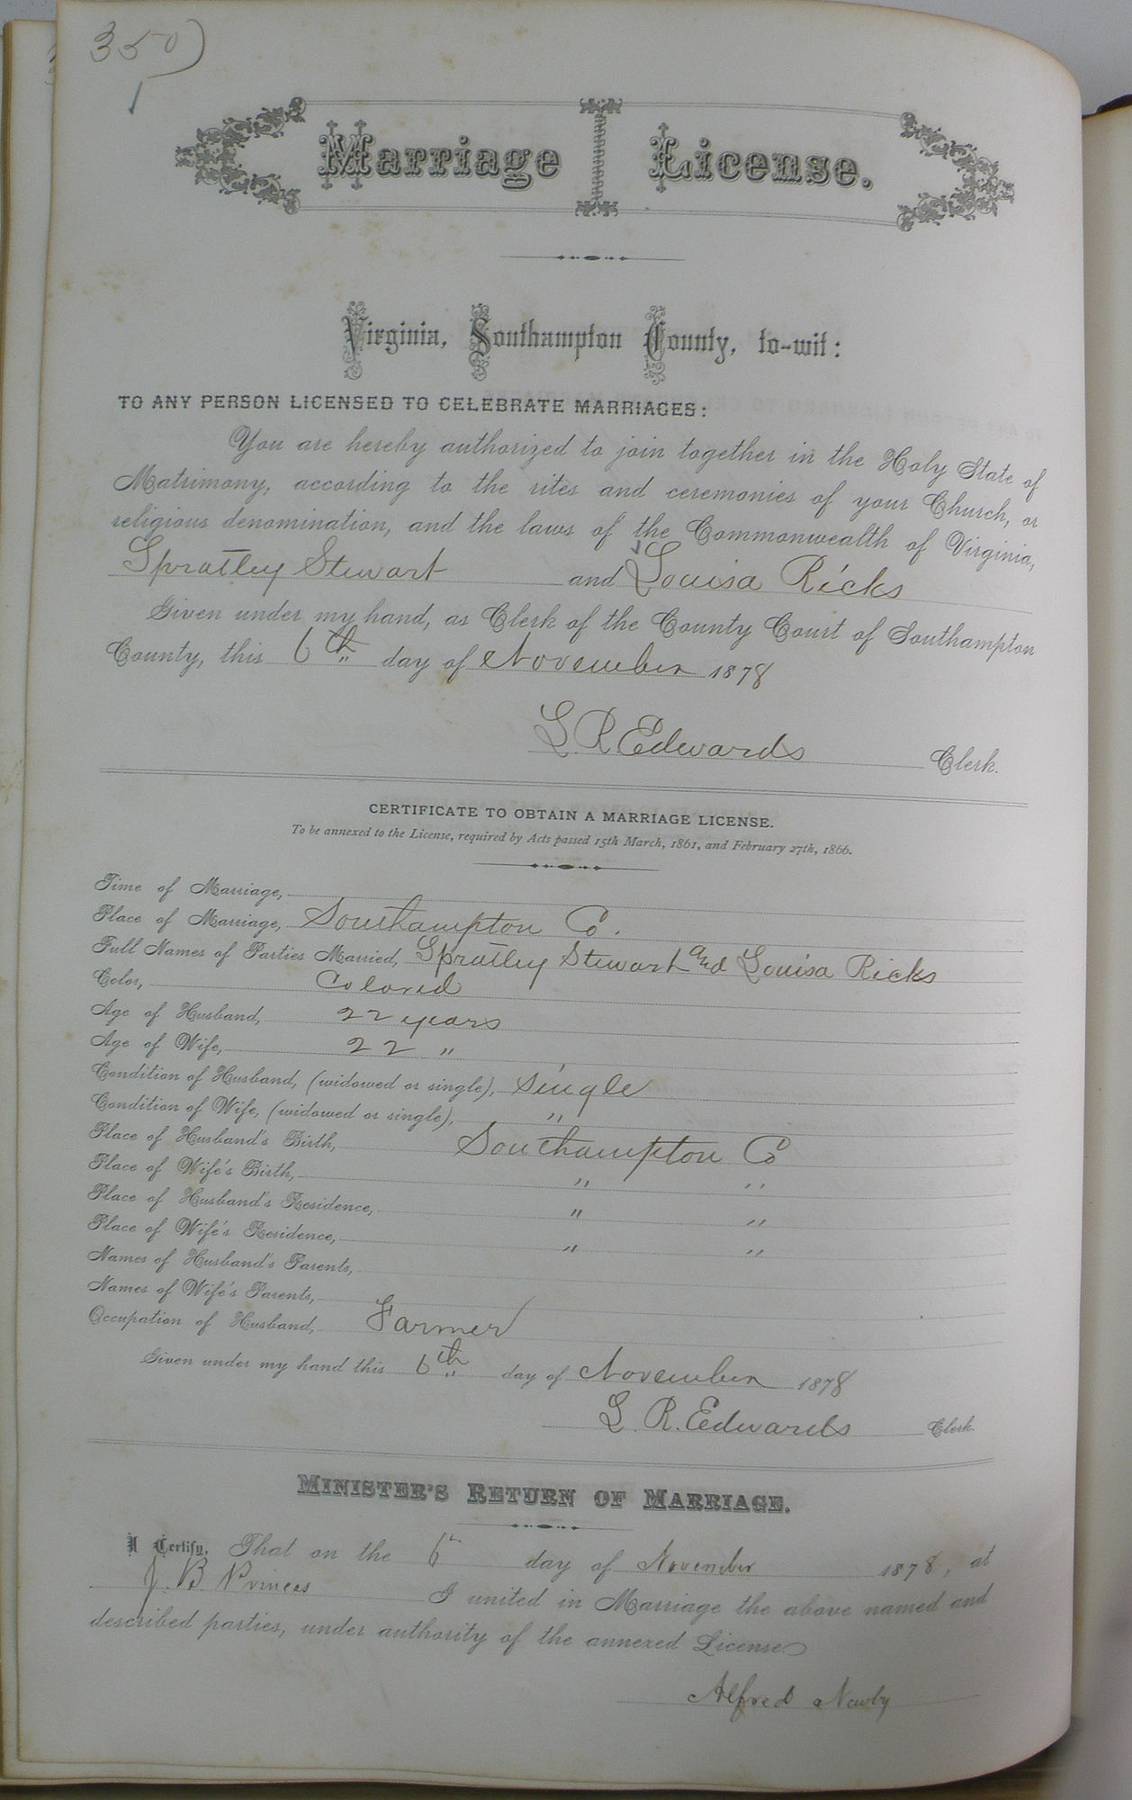 350)
Marriage License.
Virginia, Southampton County, to-wit:
TO ANY PERSON LICENSED TO CELEBRATE MARRIAGES:
You are hereby authorized to join together in the Holy State of
Matrimony, according to the rites and ceremonies of your Church, or
religious denomination, and the laws of the Commonwealth of Virginia,
Spratley Stewart and Louisa Ricks
Given under my hand, as Clerk of the County Court of Southampton
County, this 6th day of November 1878
L R Edwards Clerk.
CERTIFICATE TO OBTAIN A MARRIAGE LICENSE.
To be annexed to the License, required by Acts passed 15th March, 1861, and February 27th, 1866.
Time of Marriage,
Place of Marriage, Southampton Co.
Full Names of Parties Married, Spratley Stewart and Louisa Ricks
Color, Colored
Age of Husband, 22 years
Age of Wife, 22 "
Condition of Husband, (widowed or single), Single
Condition of Wife, (widowed or single), "
Place of Husband's Birth, Southampton Co
Place of Wife's Birth, " "
Place of Husband's Residence, " "
Place of Wife's Residence, " "
Names of Husband's Parents,
Names of Wife's Parents,
Occupation of Husband, Farmer
Given under my hand this 6th day of November 1878
L. R. Edwards Clerk.
MINISTER'S RETURN OF MARRIAGE.
I Certify, That on the 6th day of November 1878, at
J. B Princes I united in Marriage the above named and
described parties, under authority of the annexed License
Alfred Newby